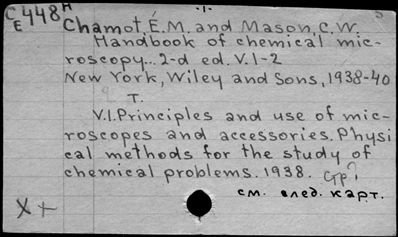 C/E 448 H
Chamot É.M. and Mason, C.W.
Handbook of chemical mic-
roscopy... 2-d ed. V.1-2
New York, Wiley and Sons, 1938-40
T.
V.I. Principles and use of mic-
roscopes and accessories. Physi
cal methods for the study of
chemical problems. 1938.
см. след. карт.
X+